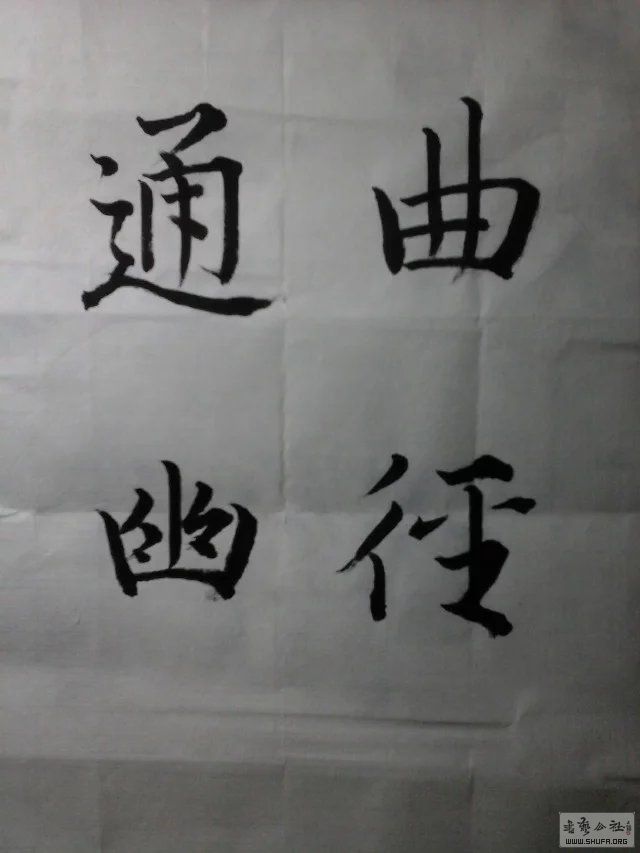 曲径
通幽
书艺公社
WWW.SHUFA.ORG